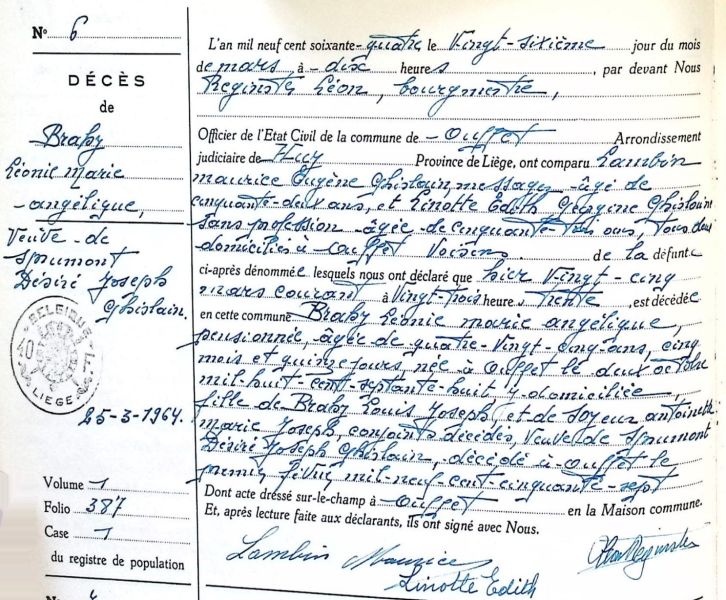 N° 6
DÉCÈS
de
Brahy
Léonie Marie
angélique,
Veuve de
Sprumont
Désiré Joseph
Ghislain.
BELGIQUE
40
LIEGE
25-3-1964.
Volume 1
Folio 387
Case 1
du registre de population
L'an mil neuf cent soixante-quatre le Vingt-sixième jour du mois
de mars, à dix heures, par devant Nous
Reginster Léon, bourgmestre,
Officier de l'Etat Civil de la commune de Ouffet Arrondissement
judiciaire de Huy Province de Liège, ont comparu Lambin
Maurice Eugène Ghislain, messager âgé de
cinquante-deux ans, et Linotte Edith Georgine Ghislain
sans profession âgée de cinquante-trois ans, tous deux
domiciliés à Ouffet Voisins de la défunte
ci-après dénommée lesquels nous ont déclaré que hier Vingt-cinq
mars courant à Vingt-trois heures trente, est décédée
en cette commune Brahy Léonie Marie angélique,
pensionnée, âgée de quatre-Vingt-cinq ans, cinq
mois et quinze jours, née à Ouffet le deux octobre
mil-huit-cent-septante-huit, y domiciliée,
fille de Brahy Louis Joseph et de Soyeur antoinette
marie Joseph, conjoints décédés, Veuve de Sprumont
Désiré Joseph Ghislain, décédé à Ouffet le
premier février mil-neuf-cent-cinquante-sept
Dont acte dressé sur-le-champ à Ouffet en la Maison commune.
Et, après lecture faite aux déclarants, ils ont signé avec Nous.
Lambin Maurice
Linotte Edith
Reginster